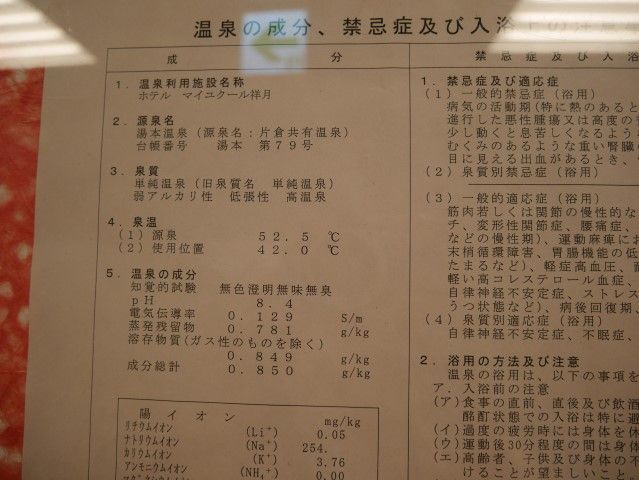 温泉の成分、禁忌症及び入浴
成 分
1. 温泉利用施設名称
ホテル マイユクール祥月
2. 源泉名
湯本温泉(源泉名:片倉共有温泉)
台帳番号 湯本 第79号
3. 泉質
単純温泉(旧泉質名 単純温泉)
弱アルカリ性 低張性 高温泉
4. 泉温
(1) 源泉 52.5 ℃
(2) 使用位置 42.0 ℃
5. 温泉の成分
知覚的試験 無色澄明無味無臭
pH 8.4
電気伝導率 0.129 S/m
蒸発残留物 0.781 g/kg
溶存物質(ガス性のものを除く)
0.849 g/kg
成分総計 0.850 g/kg
陽イオン mg/kg
リチウムイオン (Li⁺) 0.05
ナトリウムイオン (Na⁺) 254.
カリウムイオン (K⁺) 3.76
アンモニウムイオン (NH₄⁺) 0.00
禁忌症及び入浴
1. 禁忌症及び適応症
(1) 一般的禁忌症(浴用)
病気の活動期(特に熱のあると
進行した悪性腫瘍又は高度の
少し動くと息苦しくなるよう
むくみのあるような重い腎臓
目に見える出血があるとき、
(2) 泉質別禁忌症(浴用)
(3) 一般的適応症(浴用)
筋肉若しくは関節の慢性的な
チ、変形性関節症、腰痛症、
などの慢性期)、運動麻痺に
末梢循環障害、胃腸機能の低
たまるなど)、軽症高血圧、
軽い高コレステロール血症、
自律神経不安定症、ストレス
うつ状態など)、病後回復期、
(4) 泉質別適応症(浴用)
自律神経不安定症、不眠症、
2. 浴用の方法及び注意
温泉の浴用は、以下の事項を
ア、入浴前の注意
(ア)食事の直前、直後及び飲酒
酩酊状態での入浴は特に避
(イ)過度の疲労時には身体を休
(ウ)運動後30分程度の間は身体
(エ)高齢者、子供及び身体の不
けることが望ましいこと